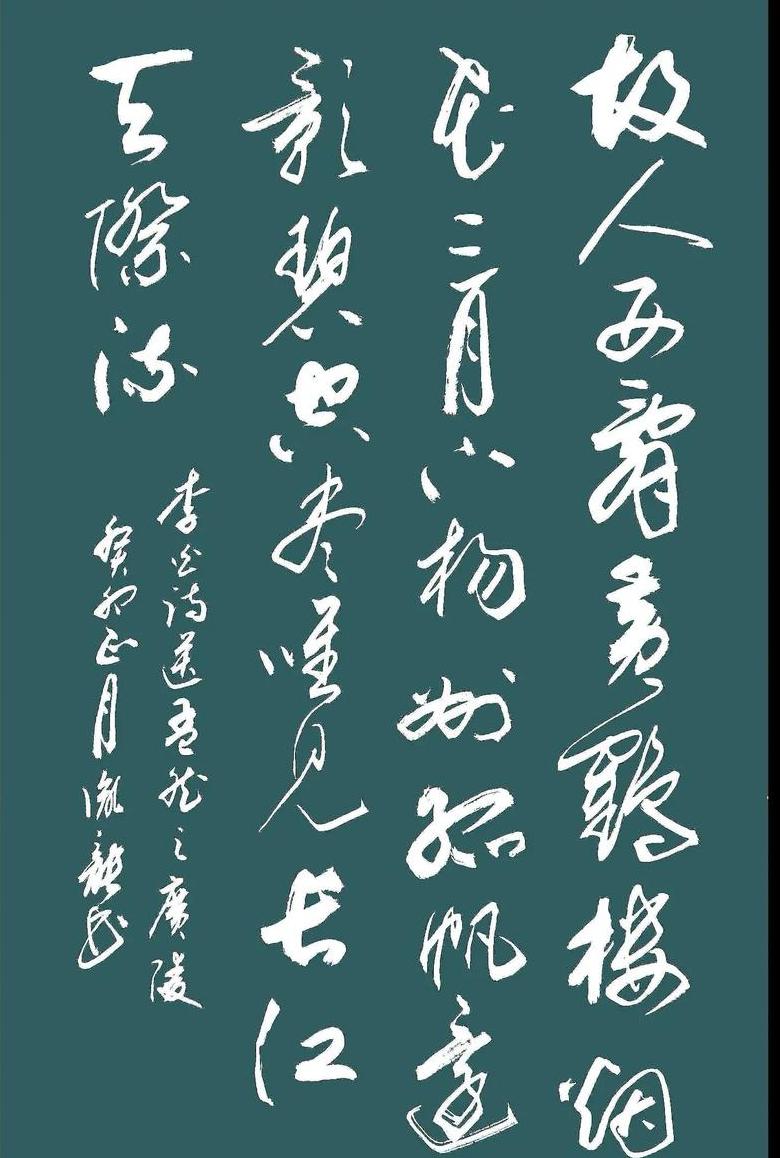 故人西辞黄鶴楼烟
花三月下杨州孤帆遠
影碧空尽唯见长江
天際流
李白诗送孟然之廣陵
癸卯正月胤龍书